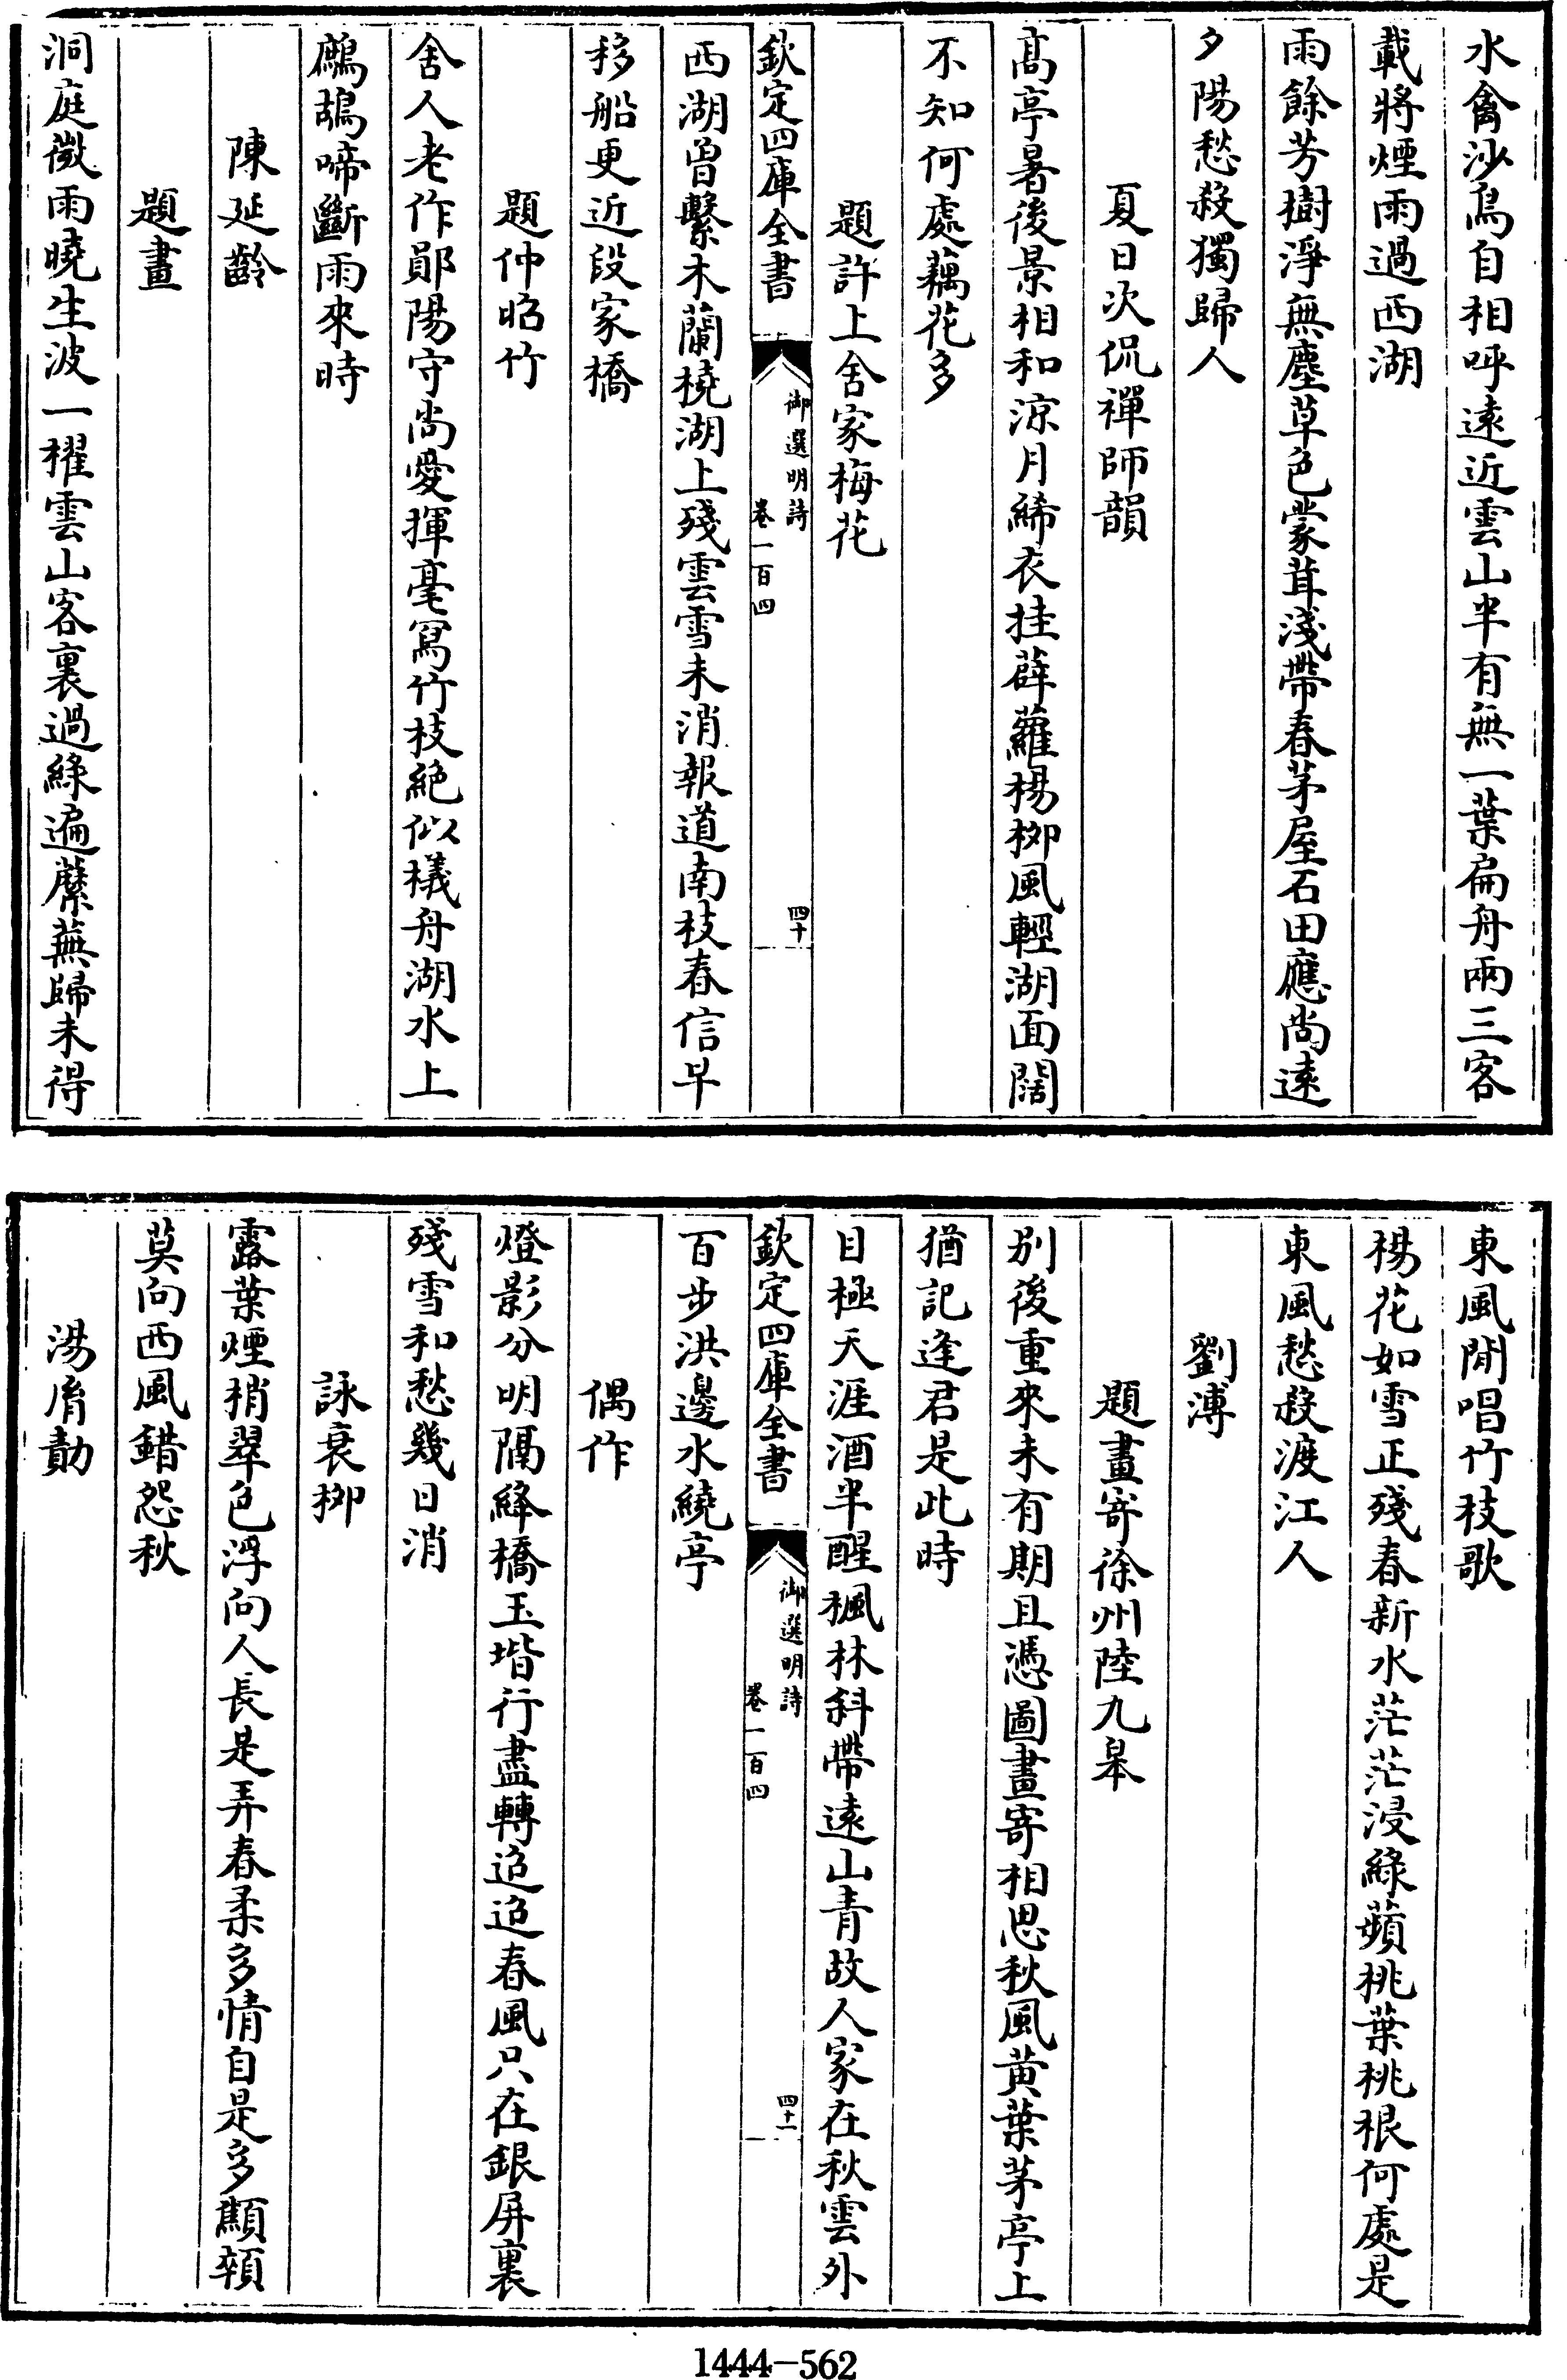 水禽沙鳥自相呼遠近雲山半有無一葉扁舟兩三客
載將煙雨過西湖
雨餘芳樹淨無塵草色蒙茸淺帶春茅屋石田應尚遠
夕陽愁殺獨歸人
夏日次侃禪師韻
髙亭暑後景相和涼月絺衣挂薜蘿楊栁風輕湖面闊
不知何處藕花多
題許上舍家梅花
欽定四庫全書
御選明詩
卷一百四
四十
西湖曽繫木蘭橈湖上殘雲雪未消報道南枝春信早
移船更近段家橋
題仲昭竹
舍人老作鄖陽守尚愛揮毫寫竹枝絶似檥舟湖水上
鷓鴣啼斷雨來時
陳延齡
題畫
洞庭微雨曉生波一櫂雲山客裏過綠遍蘼蕪歸未得
東風閒唱竹枝歌
楊花如雪正殘春新水茫茫浸綠蘋桃葉桃根何處是
東風愁殺渡江人
劉溥
題畫寄徐州陸九皋
别後重來未有期且憑圖畫寄相思秋風黄葉茅亭上
猶記逢君是此時
目極天涯酒半醒楓林斜帶遠山青故人家在秋雲外
欽定四庫全書
御選明詩
卷一百四
四十一
百步洪邊水繞亭
偶作
燈影分明隔絳橋玉堦行盡轉迢迢春風只在銀屏裏
殘雪和愁幾日消
詠衰栁
露葉煙梢翠色浮向人長是弄春柔多情自是多顦顇
莫向西風錯怨秋
湯胤勣
1444-562